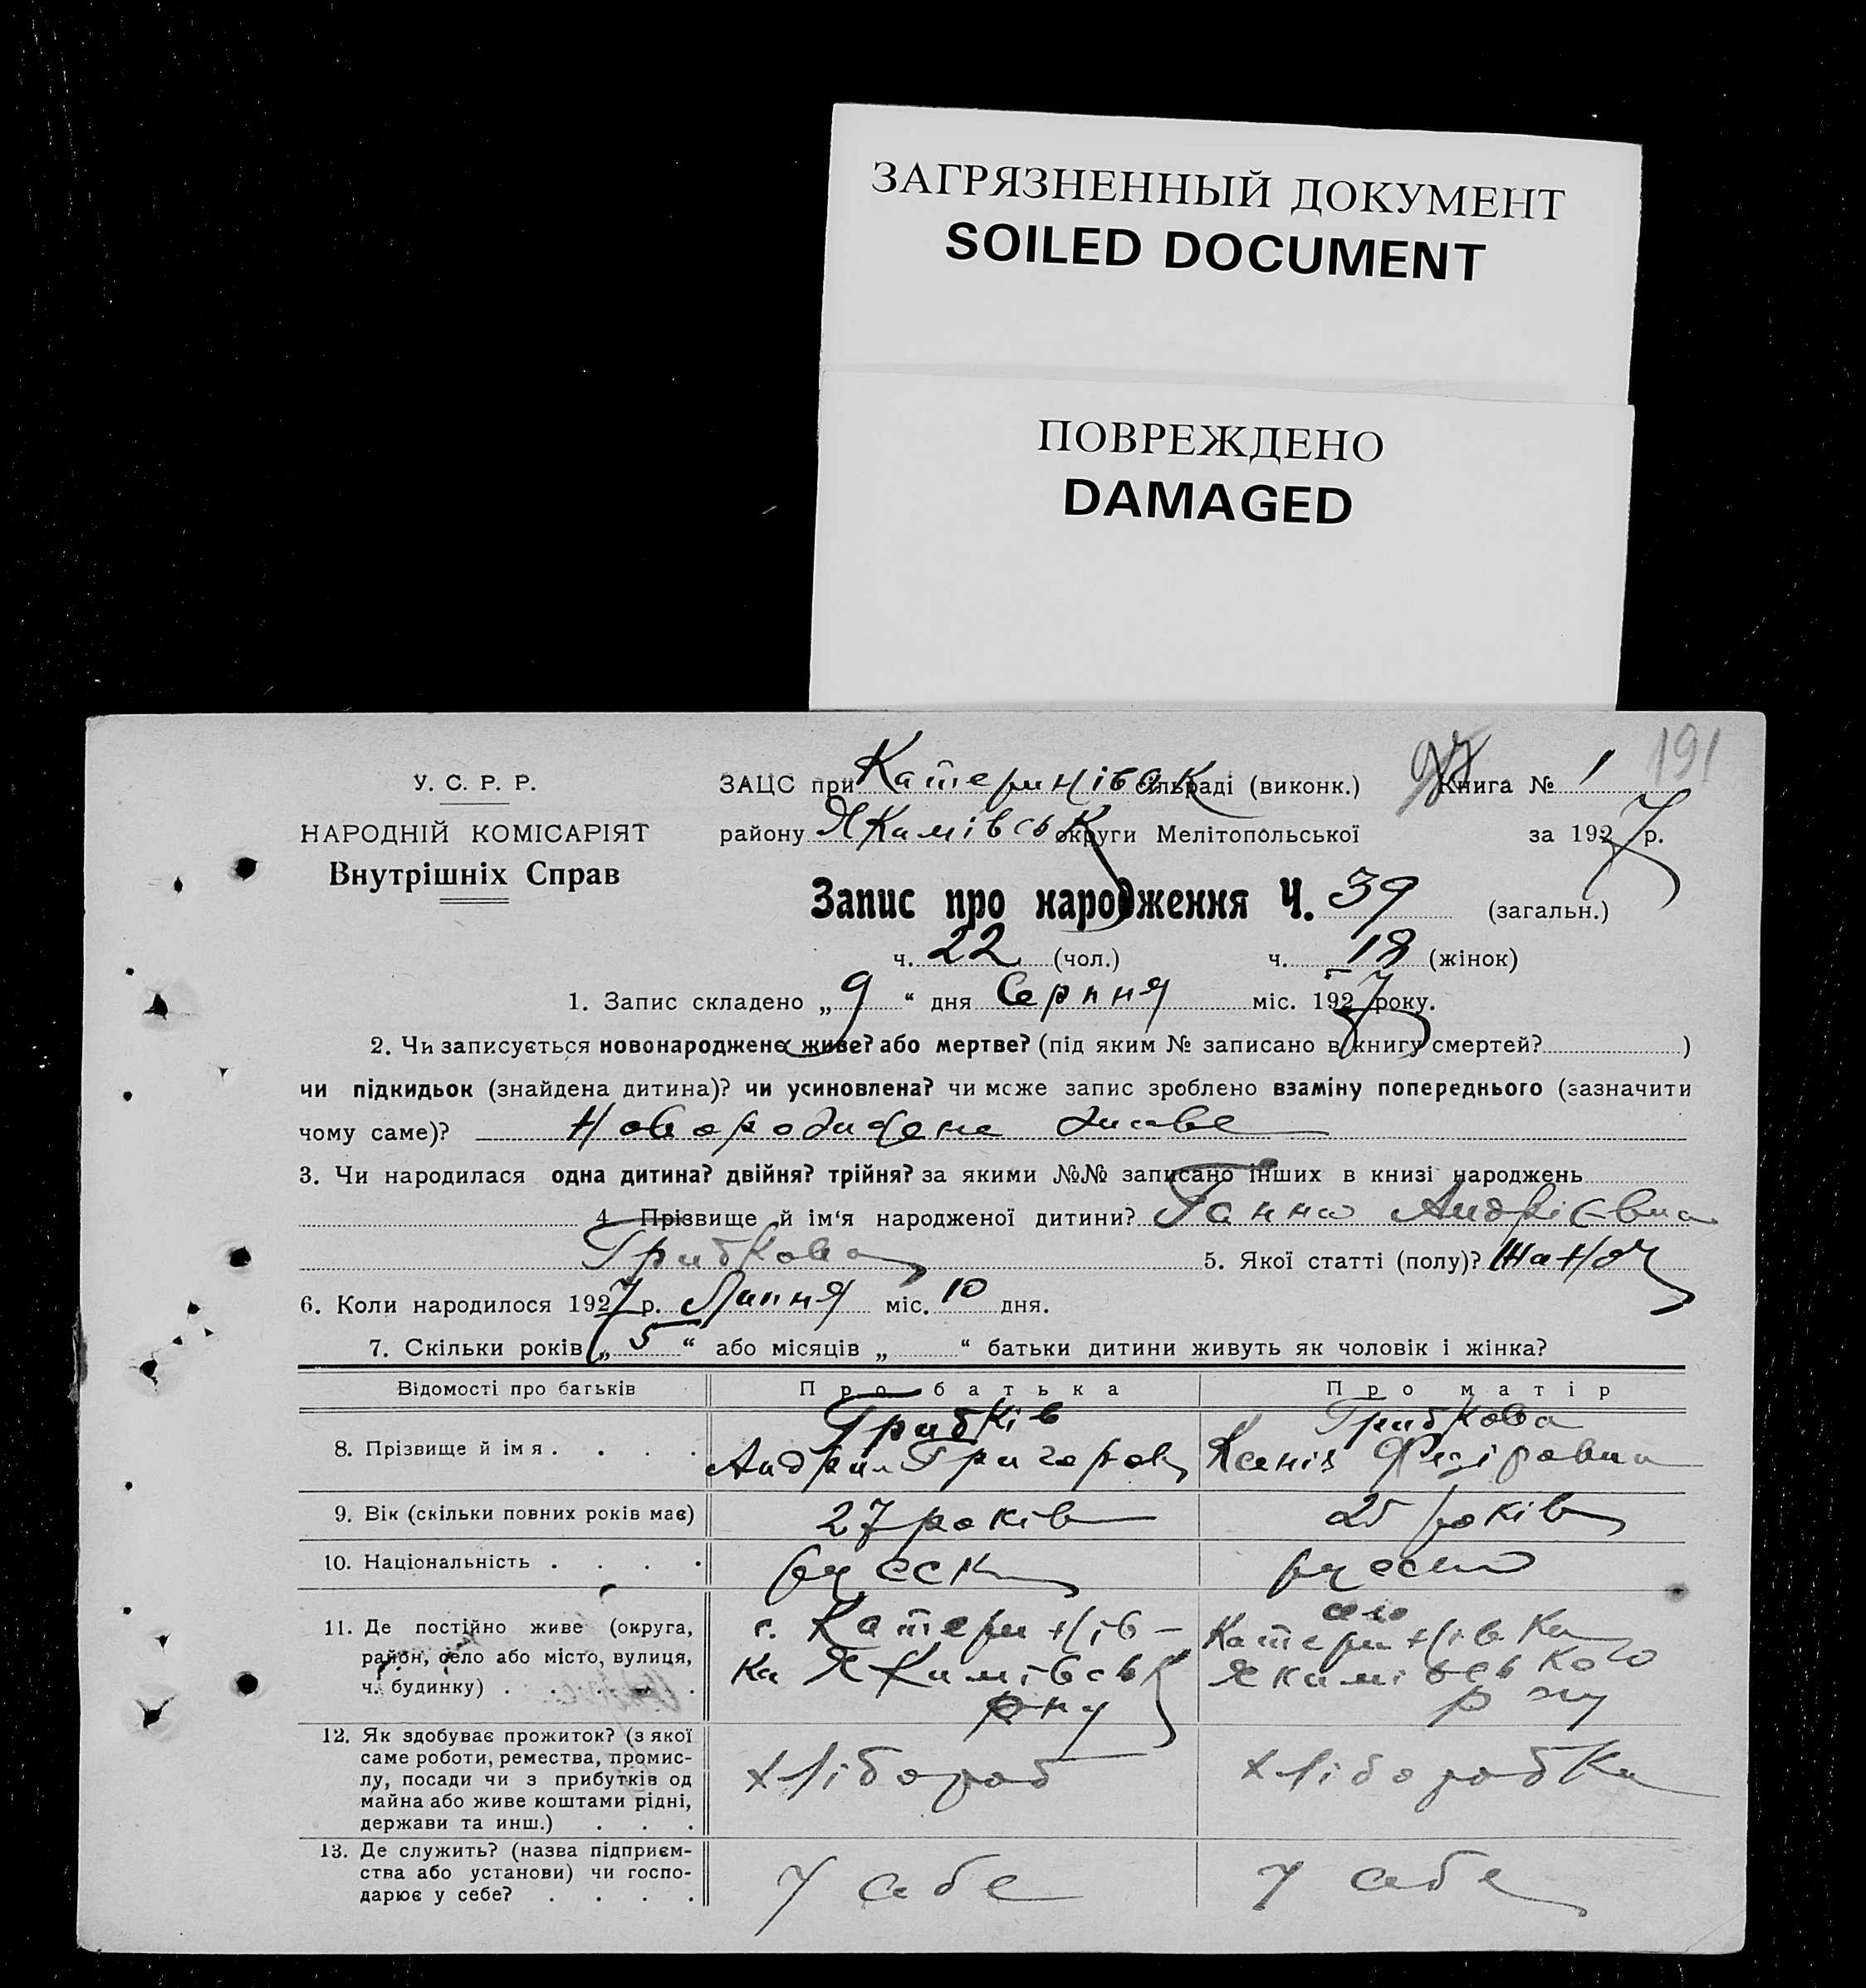 ЗАГРЯЗНЕННЫЙ ДОКУМЕНТ
SOILED DOCUMENT
ПОВРЕЖДЕНО
DAMAGED
191
У. С. Р. Р.
НАРОДНІЙ КОМІСАРІЯТ
Внутрішніх Справ
ЗАЦС при Катеринівськ сільраді (виконк.) Книга № 1
району Якимівськ округи Мелітопольської за 1927 р.
Запис про народження Ч. 39 (загальн.)
ч. 22 (чол.) ч. 18 (жінок)
1. Запис складено „9“ дня Серпня міс. 1927 року.
2. Чи записується новонароджене живе? або мертве? (під яким № записано в книгу смертей? )
чи підкидьок (знайдена дитина)? чи усиновлена? чи може запис зроблено взаміну попереднього (зазначити
чому саме)? живе
3. Чи народилася одна дитина? двійня? трійня? за якими №№ записано інших в книзі народжень
4. Прізвище й ім'я народженої дитини? Ганна Андрієвна
Грибкова 5. Якої статті (полу)?
6. Коли народилося 1927 р. Липня міс. 10 дня.
7. Скільки років „5“ або місяців „ “ батьки дитини живуть як чоловік і жінка?
Відомості про батьків Про батька Про матір
8. Прізвище й імя . . . . Грибків Грибкова
Андрій Григоров Ксенія
9. Вік (скільки повних років має) 27 років 25 років
10. Національність . . . . русск
11. Де постійно живе (округа, район, село або місто, вулиця, ч. будинку) . . . . .
с. Катеринів-
ка Якимівськ
рну
село
Катеринівка
Якимівського
р ну
12. Як здобуває прожиток? (з якої саме роботи, ремества, промис-
лу, посади чи з прибутків од майна або живе коштами рідні,
держави та инш.) . . .
хлібороб хліборобка
13. Де служить? (назва підприєм-
ства або установи) чи госпо-
дарює у себе? . . . .
у себе у себе